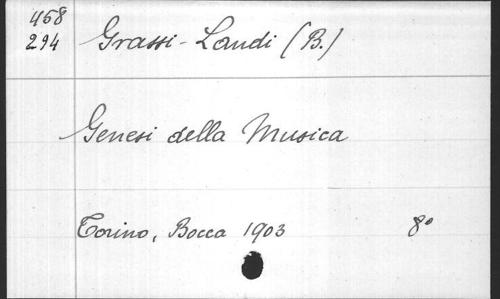 458
294 Grassi-Landi (B.)
Genesi della Musica
Torino, Bocca 1903 8°